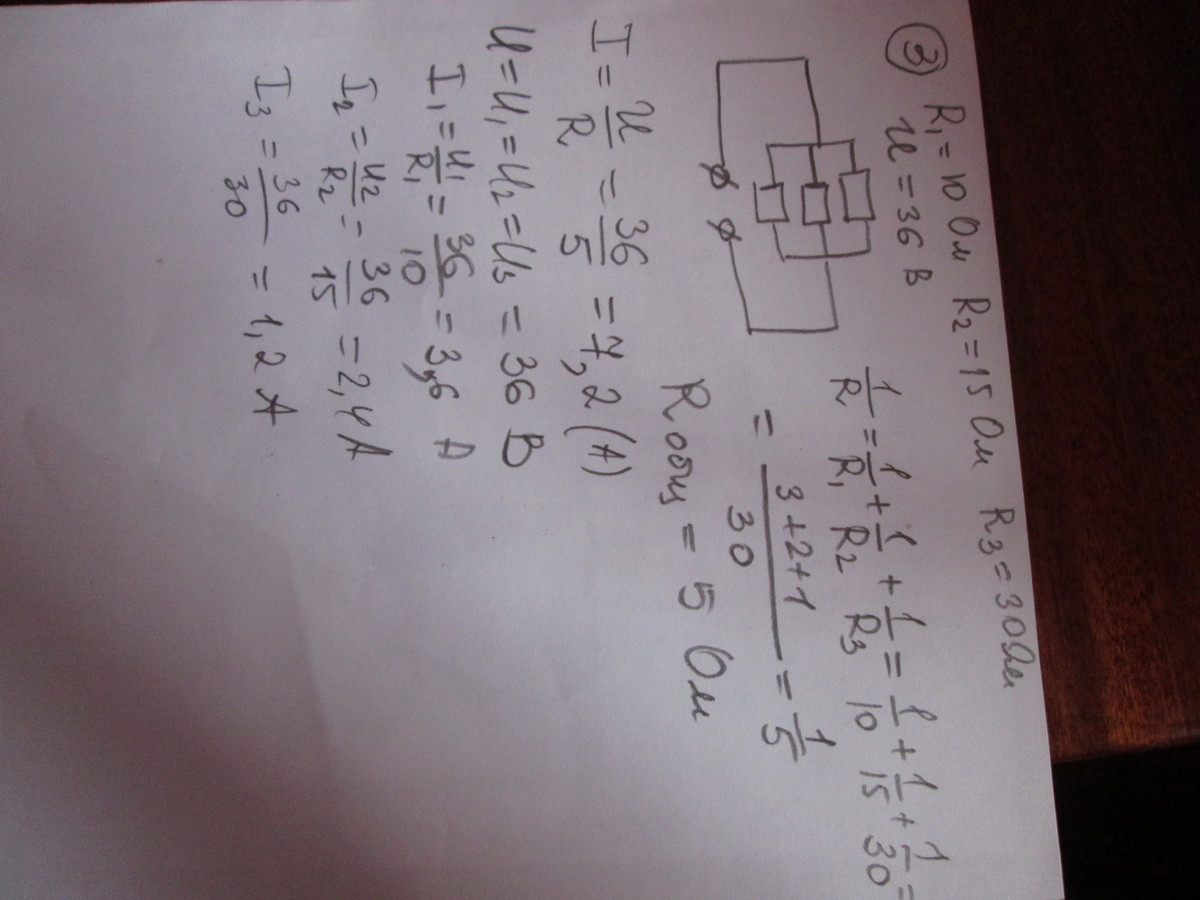 ③ R₁=10 Ом R₂=15 Ом R₃=30 Ом
U=36 В
1/R = 1/R₁ + 1/R₂ + 1/R₃ = 1/10 + 1/15 + 1/30 =
= (3+2+1)/30 = 1/5
Rобщ = 5 Ом
I = U/R = 36/5 = 7,2 (А)
U=U₁=U₂=U₃ = 36 В
I₁ = U₁/R₁ = 36/10 = 3,6 А
I₂ = U₂/R₂ = 36/15 = 2,4 А
I₃ = 36/30 = 1,2 А